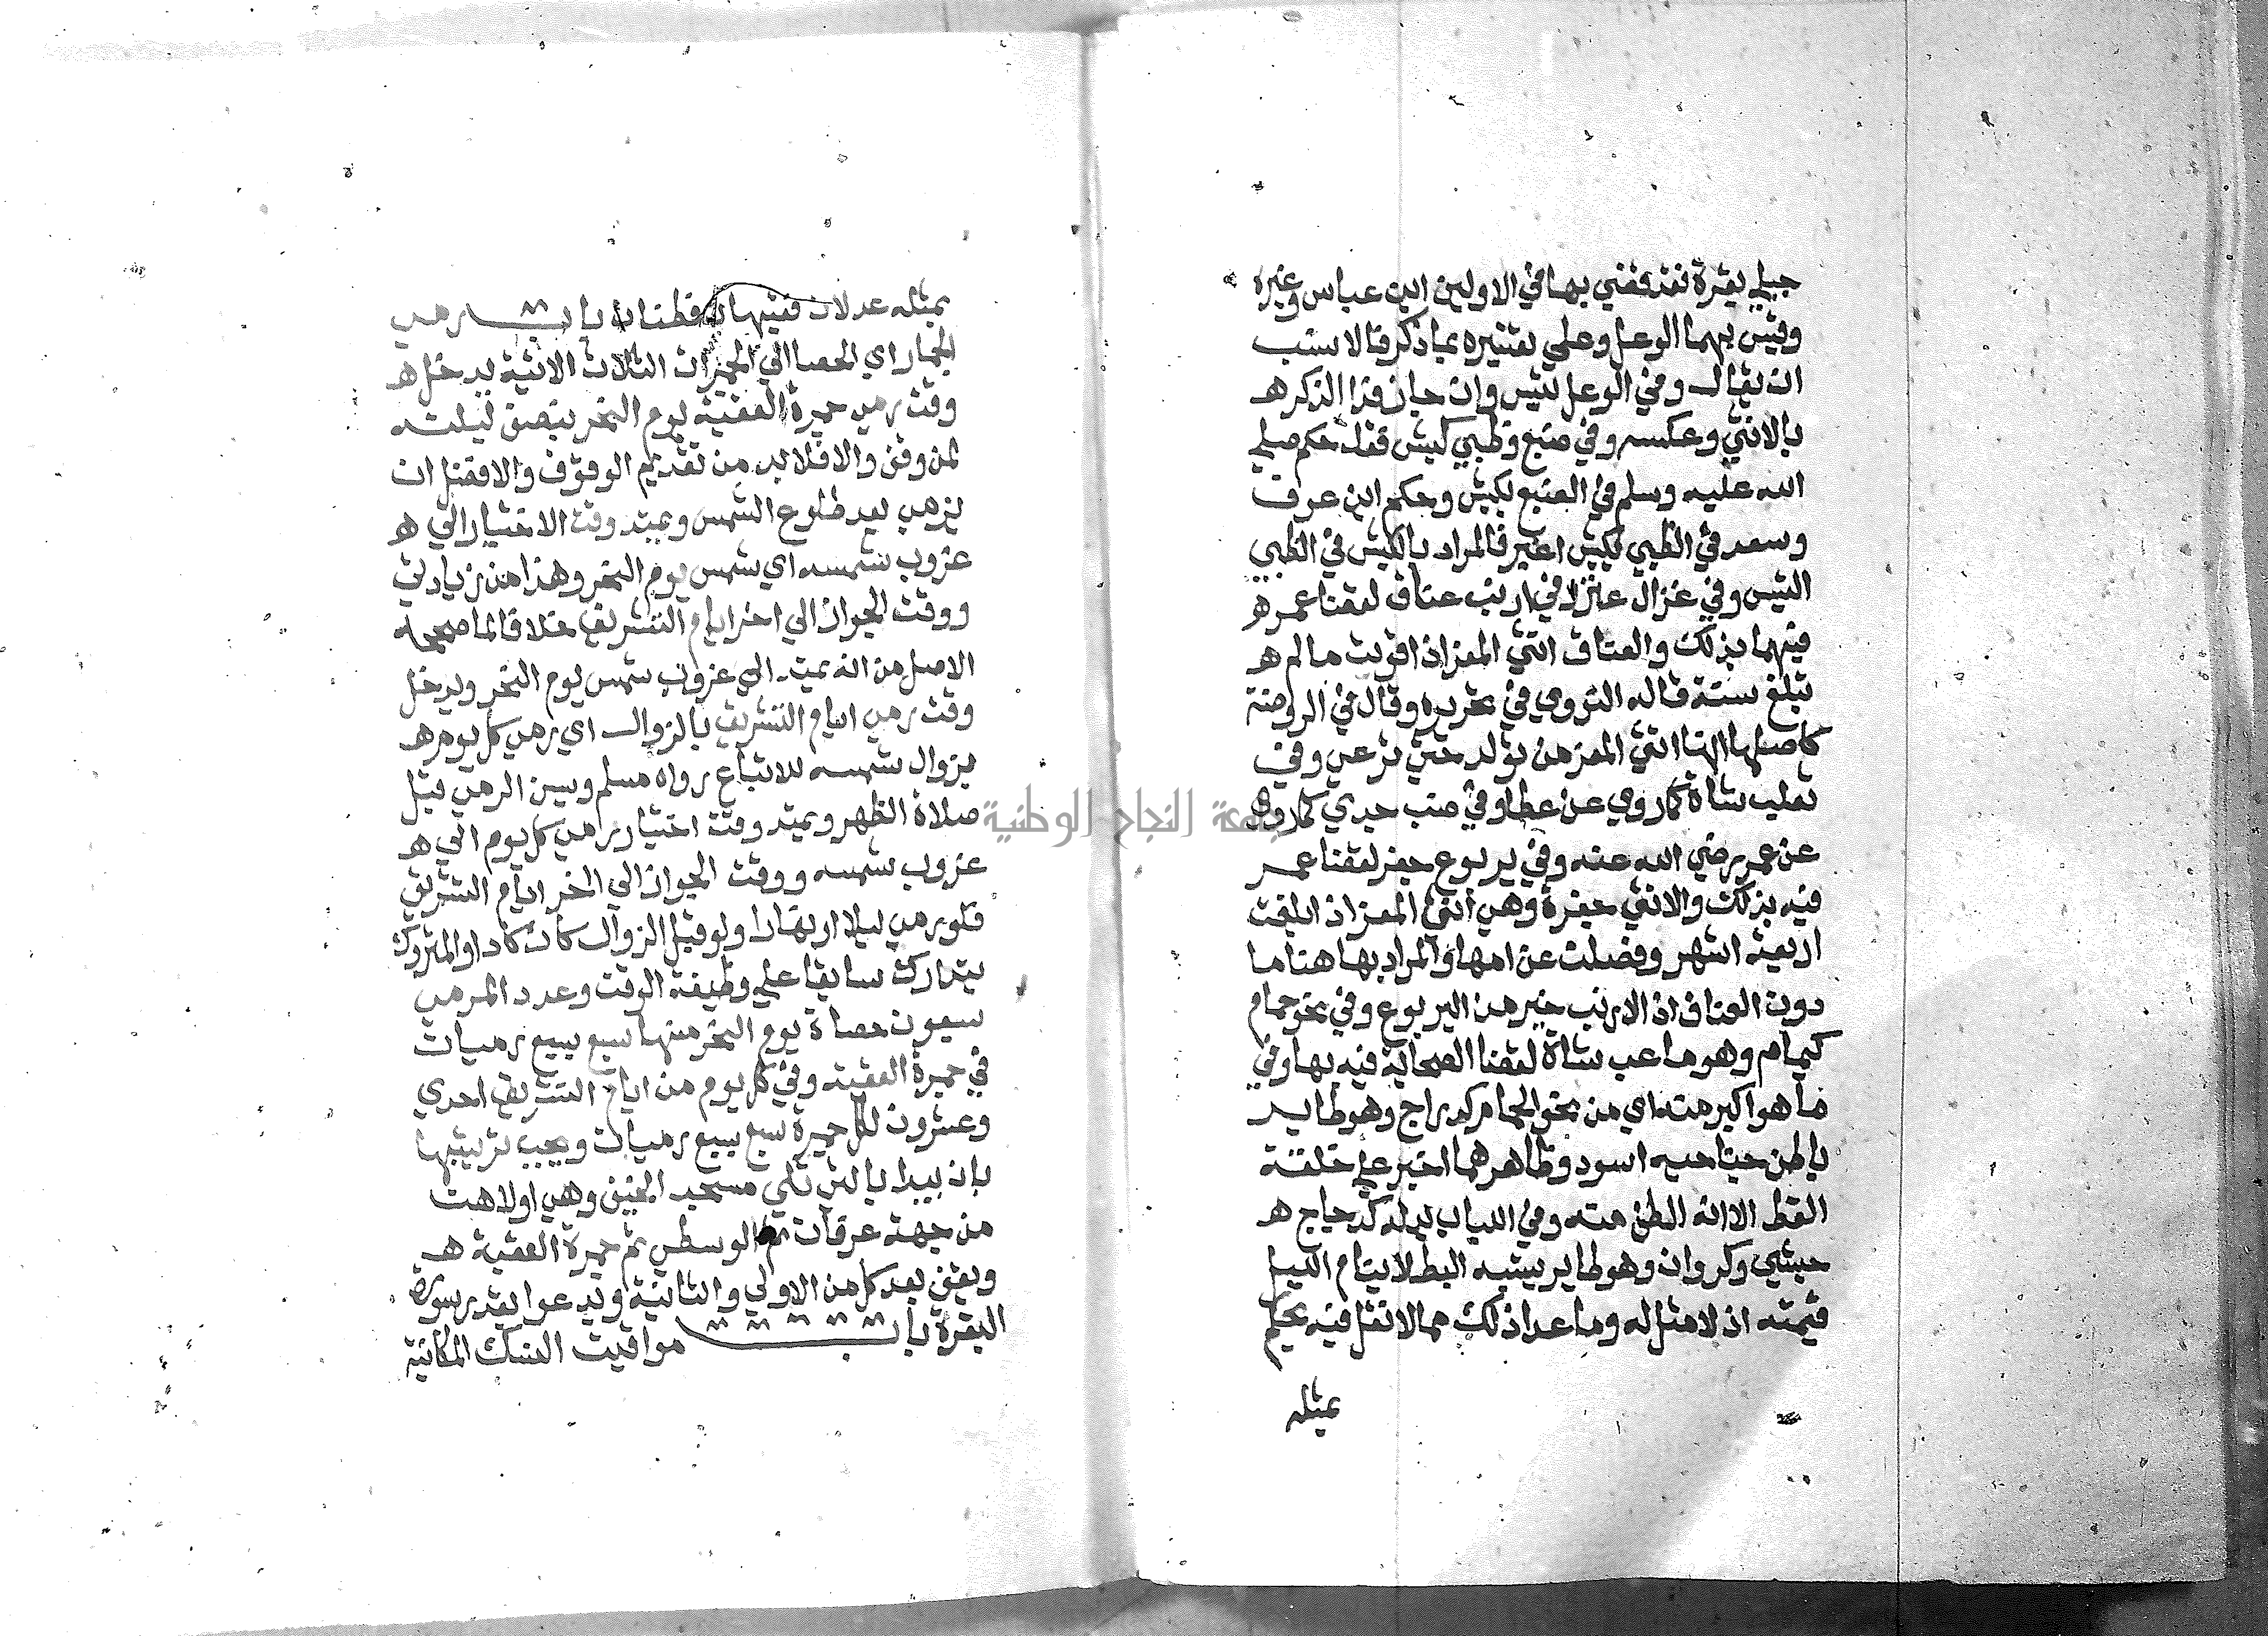 جبلي بقرة فقد قضي بها في الاولين ابن عباس وغيره
وقيس بهما الوعل وعلي تقييره بما ذكر فالانسب
ان يقال وفي الوعل تيس وان جاز فدا الذكر هـ
بالانثي وعكسه وفي ضبع وظبي كبش فقد حكم صلي
الله عليه وسلم في الضبع بكبش وحكم ابن عوف
وسعد في الظبي بكبش اعفر فالمراد بالكبش في الظبي
التيس وفي غزال عنز وفي ارنب عناق لقضا عمر هـ
فيهما بذلك والعناق انثي المعز اذا قويت ما لم هـ
تبلغ سنة قاله النووي في تحريره وقال في الروضة
كاصلها انها انثي المعز من تولد حتي ترعي وفي
ثعلب شاة كما روي عن عطا وفي ضب جدي كما روي
عن عمر رضي الله عنه وفي يربوع جفر لقضا عمر
فيه بذلك والانثي جفرة وهي انثي المعز اذا بلغت
اربعة اشهر وفصلت عن امها والمراد بها هنا ما
دون العناق اذ الارنب خير من اليربوع وفي نحو حمام
كيمام وهو ما عب شاة لقضا الصحابة فيه بها وفي
ما هو اكبر منه اي من نحو الحمام كدراج وهو طاير
باطن جناحيه اسود وظاهرهما اغبر علي خلقة
القطا الا انه الطف منه وفي اللباب بدله كدجاج هـ
حبشي وكروان وهو طاير يشبه البط لا ينام الليل
قيمته اذ لا مثل له وما عدا ذلك مما لا نقل فيه يحكم
بمثله
بمثله عدلان فقيهان فطنان باب رمي
الجمار اي الحصا الي الجمرات الثلاث الاتية يدخل هـ
وقت رمي جمرة العقبة يوم النحر بنصف ليلته
لمن وقف والا فلا بد من تقديم الوقوف والافضل ان
يرمي بعد طلوع الشمس ويمتد وقت الاختيار الي هـ
غروب شمسه اي شمس يوم النحر وهذا من زيادتي
ووقت الجواز الي اخر ايام التشريق خلافا لما صححه
الاصل من انه يمتد الي غروب شمس يوم النحر ويدخل
وقت رمي ايام التشريق بالزوال اي رمي كل يوم هـ
بزوال شمسه للاتباع رواه مسلم ويسن الرمي قبل
صلاة الظهر ويمتد وقت اختيار رمي كل يوم الي هـ
غروب شمسه ووقت الجواز الي اخر ايام التشريق
فلو رمي ليلا او نهارا ولو قبل الزوال كان اداء والمتروك
يتدارك سابقا علي وظيفة الوقت وعدد المرمي
سبعون حصاة يوم النحر منها سبع بسبع رميات
في جمرة العقبة وفي كل يوم من ايام التشريق احدي
وعشرون لكل جمرة سبع بسبع رميات ويجب ترتيبها
بان يبدا بالتي تلي مسجد الخيف وهي اولاهن
من جهة عرفات ثم الوسطي ثم جمرة العقبة هـ
ويقف بعد كل من الاولي والثانية ويدعوا بقدر سورة
البقرة باب مواقيت النسك المكانية
جامعة النجاح الوطنية